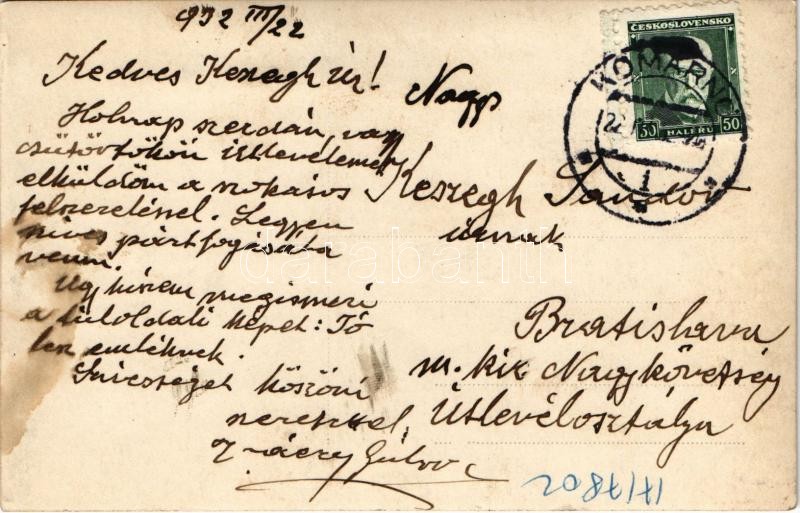 932 III/22
Kedves Keszegh Úr!
Holnap szerdán, vagy
csütörtökön útlevelemet
elküldöm a szokásos
felszereléssel. Legyen
szíves pártfogásába
venni.
Úgy hiszem megismeri
a túloldali képet: Jó
lesz emléknek.
Szívességét köszöni
szeretettel
Gyula
Nagys
Keszegh Sándor
úrnak
Bratislava
m. kir. Nagykövetség
Útlevélosztálya
ČESKOSLOVENSKO
50 HALÉŘŮ 50
KOMÁRNO
1
darabanth